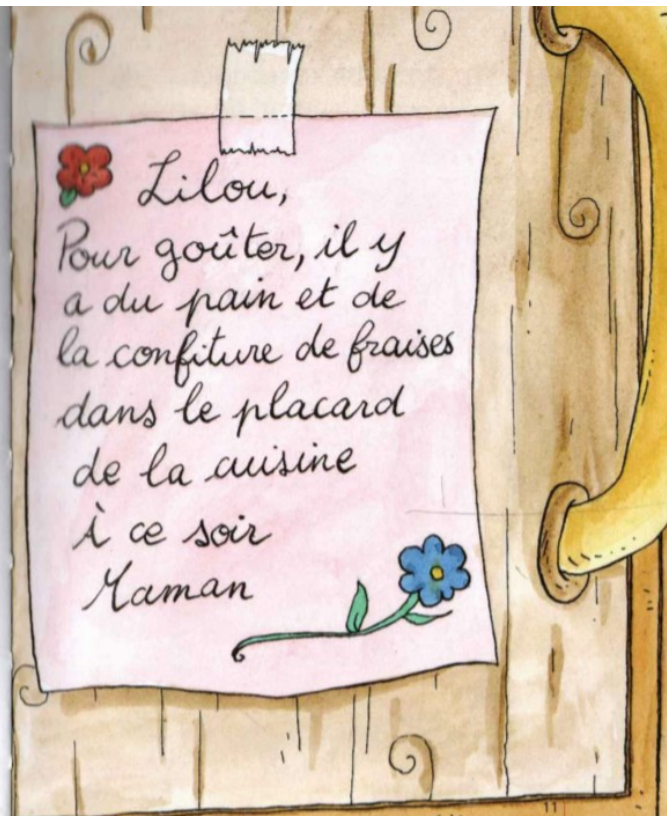 Lilou,
Pour goûter, il y
a du pain et de
la confiture de fraises
dans le placard
de la cuisine
À ce soir
Maman
11